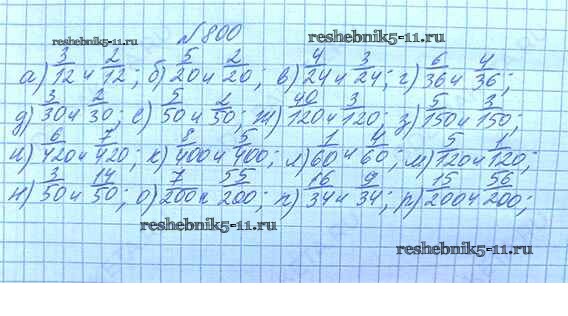 №800
reshebnik5-11.ru reshebnik5-11.ru
а) 3/12 и 2/12; б) 5/20 и 2/20; в) 4/24 и 3/24; г) 6/36 и 4/36;
д) 3/30 и 2/30; е) 5/50 и 2/50; ж) 40/120 и 3/120; з) 5/150 и 3/150;
и) 6/420 и 7/420; к) 8/400 и 5/400; л) 1/60 и 4/60; м) 5/120 и 1/120;
н) 3/50 и 14/50; о) 7/200 и 55/200; п) 16/34 и 9/34; р) 15/200 и 56/200;
reshebnik5-11.ru reshebnik5-11.ru